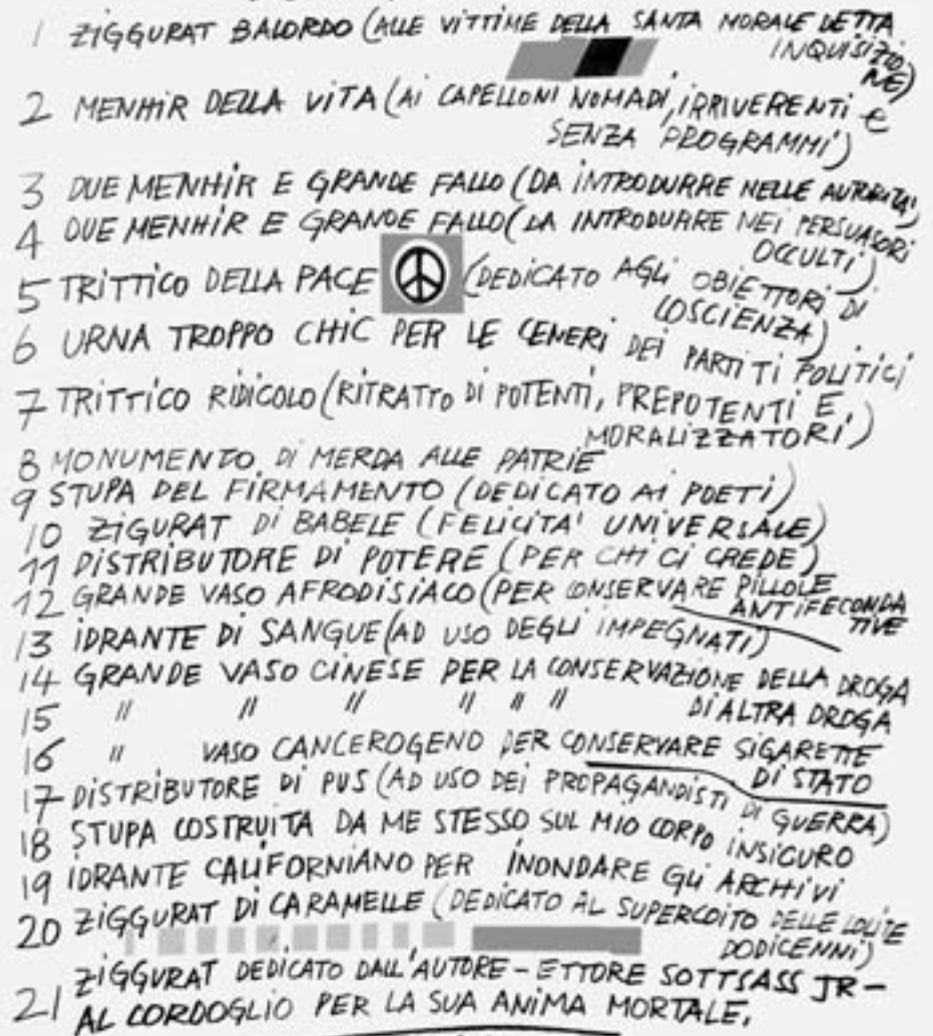 1 ZIGGURAT BALORDO (ALLE VITTIME DELLA SANTA MORALE DETTA
INQUISIZIO
NE)
2 MENHIR DELLA VITA (AI CAPELLONI NOMADI, IRRIVERENTI E
SENZA PROGRAMMI)
3 DUE MENHIR E GRANDE FALLO (DA INTRODURRE NELLE AUTORITA')
4 DUE MENHIR E GRANDE FALLO (DA INTRODURRE NEI PERSUASORI
OCCULTI)
5 TRITTICO DELLA PACE (DEDICATO AGLI OBIETTORI DI
COSCIENZA)
6 URNA TROPPO CHIC PER LE CENERI DEI PARTITI POLITICI
7 TRITTICO RIDICOLO (RITRATTO DI POTENTI, PREPOTENTI E,
MORALIZZATORI)
8 MONUMENTO DI MERDA ALLE PATRIE
9 STUPA DEL FIRMAMENTO (DEDICATO AI POETI)
10 ZIGURAT DI BABELE (FELICITA' UNIVERSALE)
11 DISTRIBUTORE DI POTERE (PER CHI CI CREDE)
12 GRANDE VASO AFRODISIACO (PER CONSERVARE PILLOLE
ANTIFECONDA
TIVE
13 IDRANTE DI SANGUE (AD USO DEGLI IMPEGNATI)
14 GRANDE VASO CINESE PER LA CONSERVAZIONE DELLA DROGA
15 " " " " " " DI ALTRA DROGA
16 " VASO CANCEROGENO PER CONSERVARE SIGARETTE
DI STATO
17 DISTRIBUTORE DI PUS (AD USO DEI PROPAGANDISTI DI GUERRA)
18 STUPA COSTRUITA DA ME STESSO SUL MIO CORPO INSICURO
19 IDRANTE CALIFORNIANO PER INONDARE GLI ARCHIVI
20 ZIGGURAT DI CARAMELLE (DEDICATO AL SUPERCOITO DELLE LOLITE
DODICENNI)
ZIGGURAT DEDICATO DALL'AUTORE - ETTORE SOTTSASS JR -
21 AL CORDOGLIO PER LA SUA ANIMA MORTALE.